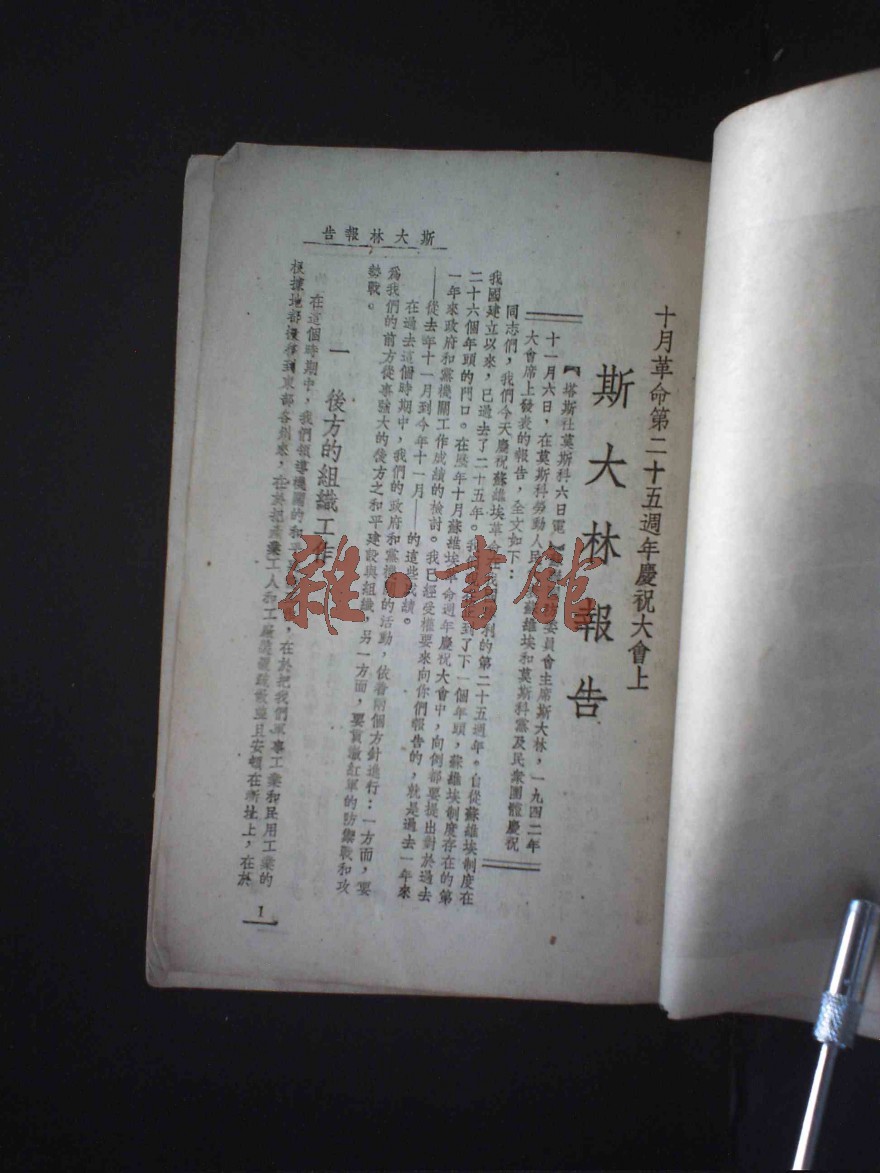 十月革命第二十五週年慶祝大會上
斯大林報告
【塔斯社莫斯科六日電】委員會主席斯大林，一九四二年
十一月六日，在莫斯科勞動人民蘇維埃和莫斯科黨及民衆團體慶祝
大會席上發表的報告，全文如下：
同志們，我們今天慶祝蘇維埃革命在我國勝利的第二十五週年。自從蘇維埃制度在
我國建立以來，已過去了二十五年。我們到了下一個年頭，蘇維埃制度存在的第
二十六個年頭的門口。在歷年十月蘇維埃革命週年慶祝大會中，向例都要提出對於過去
一年來政府和黨機關工作成績的檢討。我已經受權要來向你們報告的，就是過去一年來
——從去年十一月到今年十一月——的這些成績。
在過去這個時期中，我們的政府和黨機關的活動，依着兩個方針進行：一方面，要
爲我們的前方從事強大的後方之和平建設與組織，另一方面，要實施紅軍的防禦戰和攻
勢戰。
一 後方的組織工作
在這個時期中，我們領導機關的和平，在於把我們軍事工業和民用工業的
根據地都搬移到東部各州來，在於把產業工人和工廠裝置疏散並且安頓在新址上，在於
斯大林報告
1
雜·書館